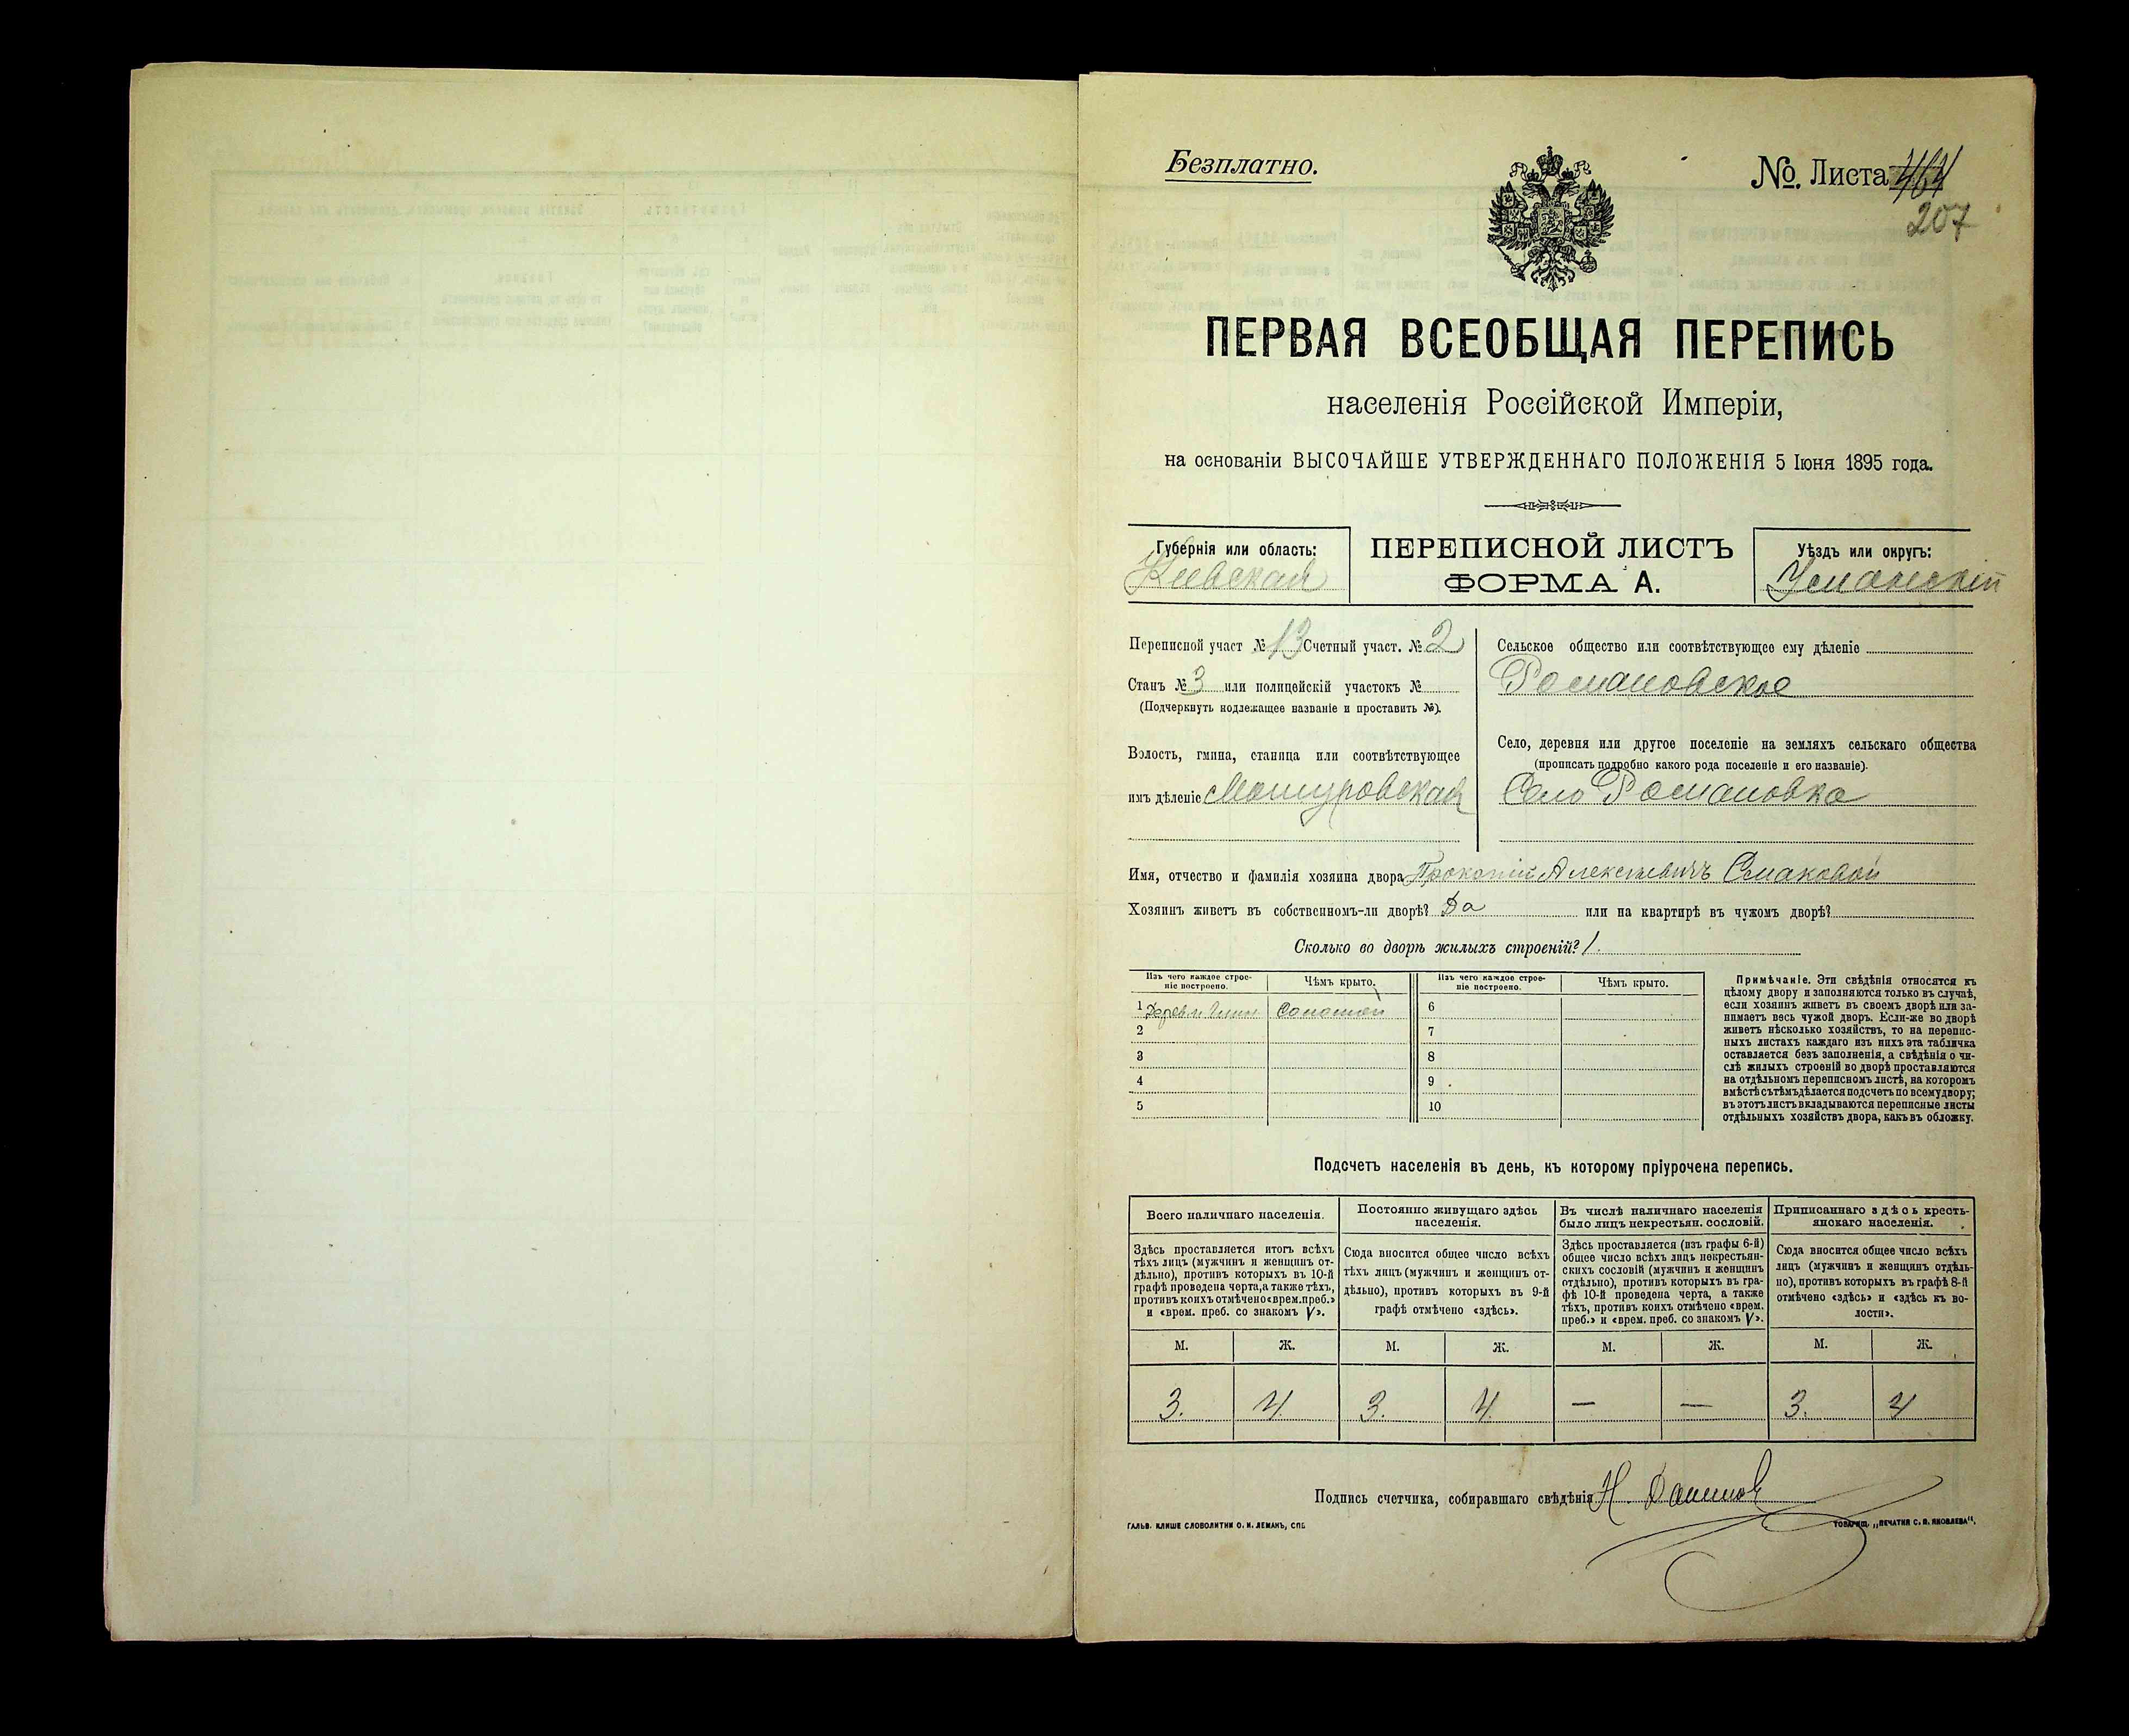 Безплатно.
№. Листа
207
ПЕРВАЯ ВСЕОБЩАЯ ПЕРЕПИСЬ
населенія Россійской Имперіи,
на основаніи ВЫСОЧАЙШЕ УТВЕРЖДЕННАГО ПОЛОЖЕНІЯ 5 Іюня 1895 года.
Губернія или область:
Кіевская
ПЕРЕПИСНОЙ ЛИСТЪ
ФОРМА А.
Уѣздъ или округъ:
Уманскій
Переписной участ № 13 Счетный участ. № 2
Станъ № 3 или полицейскій участокъ №
(Подчеркнуть подлежащее названіе и проставить №).
Волость, гмина, станица или соотвѣтствующее
имъ дѣленіе Мошуровская
Сельское общество или соотвѣтствующее ему дѣленіе
Романовское
Село, деревня или другое поселеніе на земляхъ сельскаго общества
(прописать подробно какого рода поселеніе и его названіе).
Село Романовка
Имя, отчество и фамилія хозяина двора Прокопій Алексѣевичъ
Хозяинъ живетъ въ собственномъ-ли дворѣ? Да или на квартирѣ въ чужомъ дворѣ?
Сколько во дворѣ жилыхъ строеній? 1.
Изъ чего каждое строе-
ніе построено.
Чѣмъ крыто.
Изъ чего каждое строе-
ніе построено.
Чѣмъ крыто.
1 Соломой 6
2 7
3 8
4 9
5 10
Примѣчаніе. Эти свѣдѣнія относятся къ
цѣлому двору и заполняются только въ случаѣ,
если хозяинъ живетъ въ своемъ дворѣ или за-
нимаетъ весь чужой дворъ. Если-же во дворѣ
живетъ нѣсколько хозяйствъ, то на перепис-
ныхъ листахъ каждаго изъ нихъ эта табличка
оставляется безъ заполненія, а свѣдѣнія о чи-
слѣ жилыхъ строеній во дворѣ проставляются
на отдѣльномъ переписномъ листѣ, на которомъ
вмѣстѣ съ тѣмъ дѣлается подсчетъ по всему двору;
въ этотъ листъ вкладываются переписные листы
отдѣльныхъ хозяйствъ двора, какъ въ обложку.
Подсчетъ населенія въ день, къ которому пріурочена перепись.
Всего наличнаго населенія.
Здѣсь проставляется итогъ всѣхъ
тѣхъ лицъ (мужчинъ и женщинъ от-
дѣльно), противъ которыхъ въ 10-й
графѣ проведена черта, а также тѣхъ,
противъ коихъ отмѣчено «врем. преб.»
и «врем. преб. со знакомъ V».
Постоянно живущаго здѣсь
населенія.
Сюда вносится общее число всѣхъ
тѣхъ лицъ (мужчинъ и женщинъ от-
дѣльно), противъ которыхъ въ 9-й
графѣ отмѣчено «здѣсь».
Въ числѣ наличнаго населенія
было лицъ некрестьян. сословій.
Здѣсь проставляется (изъ графы 6-й)
общее число всѣхъ лицъ некрестьян-
скихъ сословій (мужчинъ и женщинъ
отдѣльно), противъ которыхъ въ гра-
фѣ 10-й проведена черта, а также
тѣхъ, противъ коихъ отмѣчено «врем.
преб.» и «врем. преб. со знакомъ V».
Приписаннаго здѣсь кресть-
янскаго населенія.
Сюда вносится общее число всѣхъ
лицъ (мужчинъ и женщинъ отдѣль-
но), противъ которыхъ въ графѣ 8-й
отмѣчено «здѣсь» и «здѣсь къ во-
лости».
М. Ж. М. Ж. М. Ж. М. Ж.
3. 4. 3. 4. — — 3. 4
Подпись счетчика, собиравшаго свѣдѣнія Н.
ГАЛЬВ. КЛИШЕ СЛОВОЛИТНИ О. И. ЛЕМАНЪ, СПБ.
ТОВАРИЩ. „ПЕЧАТНЯ С. П. ЯКОВЛЕВА".